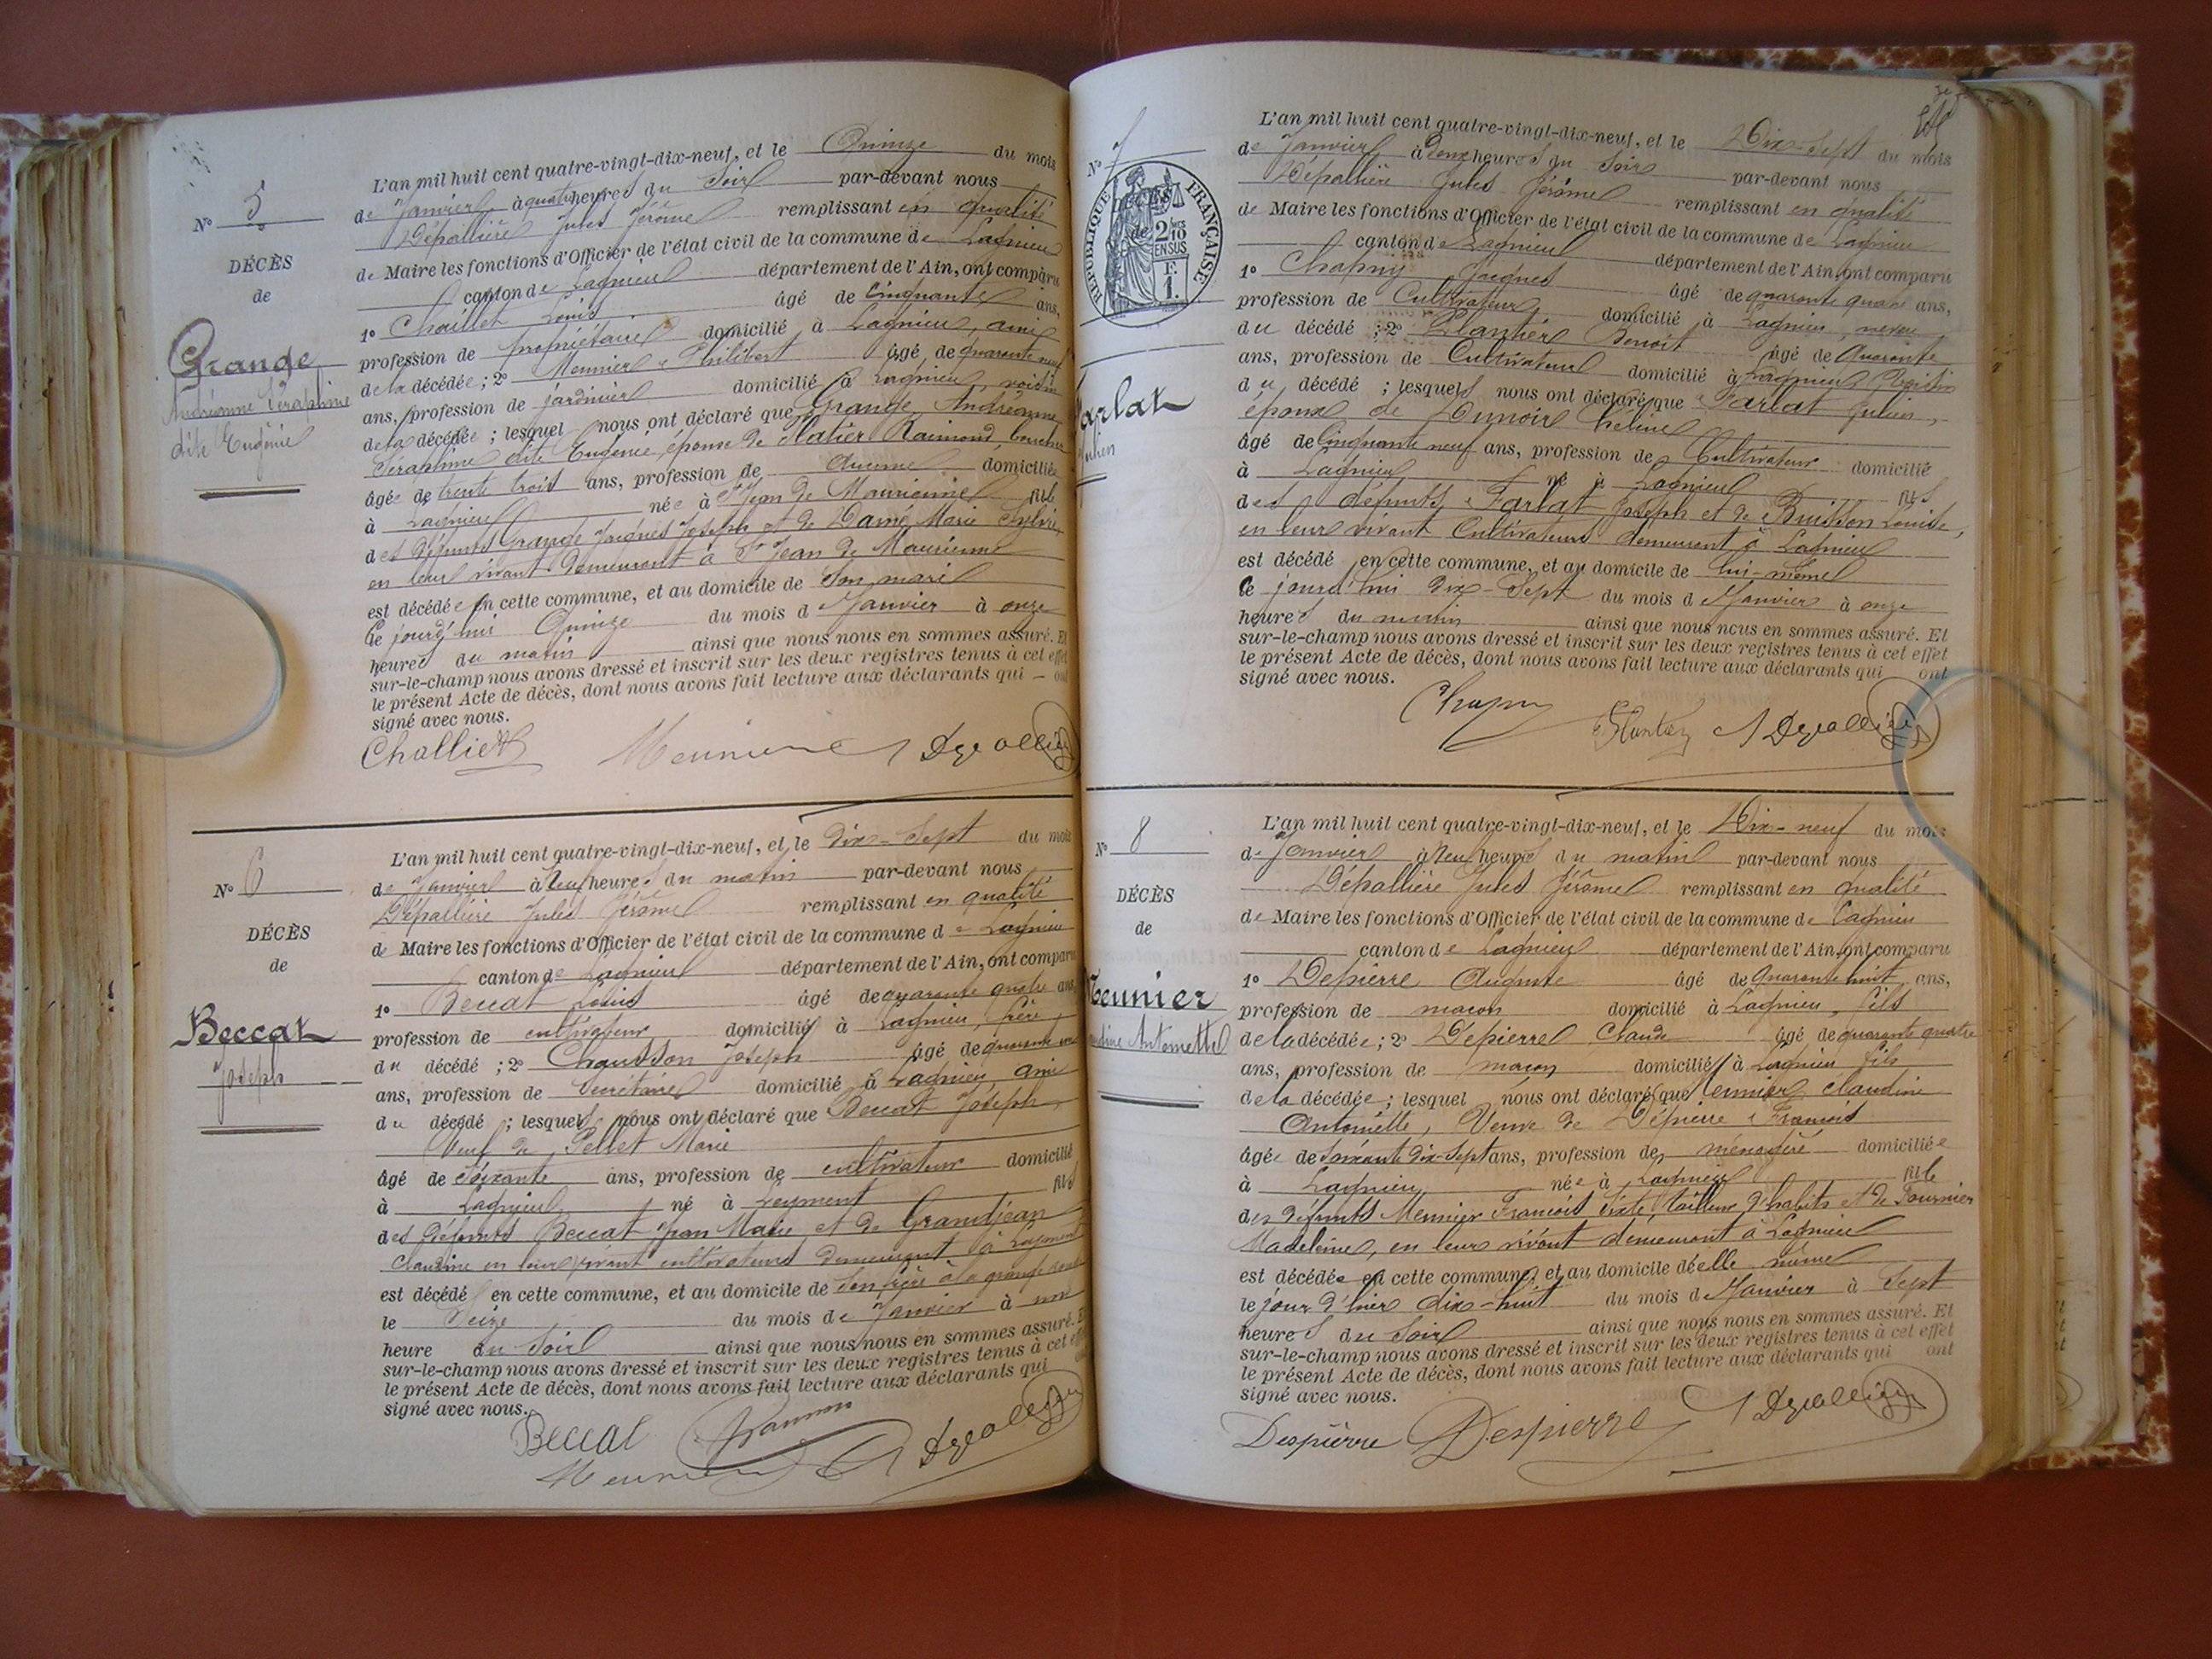 N° 5
DÉCÈS
de
Grande
Andréanne Séraphine
dite Eugénie
L'an mil huit cent quatre-vingt-dix-neuf, et le Quinze du mois
de Janvier à quatre heures du Soir par-devant nous
Dépallière Jules Jérôme remplissant en qualité
de Maire les fonctions d'Officier de l'état civil de la commune de Lagnieu
canton de Lagnieu département de l'Ain, ont comparu
1° Chaillet Louis âgé de Cinquante ans,
profession de propriétaire domicilié à Lagnieu, ami
de la décédée ; 2° Meunier Philibert âgé de quarante neuf
ans, profession de jardinier domicilié à Lagnieu, voisin
de la décédée ; lesquel nous ont déclaré que Grande Andréanne
Séraphine dite Eugénie, épouse de Raimond
âgée de trente trois ans, profession de Aucune domiciliée
à Lagnieu née à St Jean de Maurienne fille
des défunts Grande Jacques Joseph et de Damé Marie Sylvie
en leur vivant demeurant à St Jean de Maurienne
est décédée en cette commune, et au domicile de son mari
ce jourd'hui Quinze du mois d Janvier à onze
heures du matin ainsi que nous nous en sommes assuré. Et
sur-le-champ nous avons dressé et inscrit sur les deux registres tenus à cet effet
le présent Acte de décès, dont nous avons fait lecture aux déclarants qui ont
signé avec nous.
Challiet Meunier
N° 6
DÉCÈS
de
Beccat
Joseph
L'an mil huit cent quatre-vingt-dix-neuf, et le dix-Sept du mois
de Janvier à Neuf heures du matin par-devant nous
Dépallière Jules Jérôme remplissant en qualité
de Maire les fonctions d'Officier de l'état civil de la commune de Lagnieu
canton de Lagnieu département de l'Ain, ont comparu
1° Beccat Louis âgé de quarante quatre ans,
profession de cultivateur domicilié à Lagnieu, frère
du décédé ; 2° Chausson Joseph âgé de quarante
ans, profession de Secrétaire domicilié à Lagnieu, ami
du décédé ; lesquels nous ont déclaré que Beccat Joseph,
Veuf de Pellet Marie
âgé de soixante ans, profession de cultivateur domicilié
à Lagnieu né à Leyment fils
des défunts Beccat Jean Marie et de Grandjean
Claudine en leur vivant cultivateurs demeurant à Leyment
est décédé en cette commune, et au domicile de son frère à la grange
le Seize du mois de Janvier à une
heure du Soir ainsi que nous nous en sommes assuré. Et
sur-le-champ nous avons dressé et inscrit sur les deux registres tenus à cet effet
le présent Acte de décès, dont nous avons fait lecture aux déclarants qui
signé avec nous.
Beccat
Meunier
N° 7
RÉPUBLIQUE FRANÇAISE
2/10 EN SUS
F. 1.
Farlat
Julien
L'an mil huit cent quatre-vingt-dix-neuf, et le Dix-Sept du mois
de Janvier à Deux heures du Soir par-devant nous
Dépallière Jules Jérôme remplissant en qualité
de Maire les fonctions d'Officier de l'état civil de la commune de Lagnieu
canton de Lagnieu département de l'Ain, ont comparu
1° Chapuy Jacques âgé de quarante quatre ans,
profession de Cultivateur domicilié à Lagnieu, neveu
du décédé ; 2° Plantier Benoit âgé de Quarante
ans, profession de Cultivateur domicilié à Lagnieu,
du décédé ; lesquels nous ont déclaré que Farlat Julien,
époux de Dunoir Céline
âgé de Cinquante neuf ans, profession de Cultivateur domicilié
à Lagnieu né à Lagnieu fils
des défunts Farlat Joseph et de Buisson Louise,
en leur vivant Cultivateurs demeurant à Lagnieu
est décédé en cette commune, et au domicile de lui-même
ce jourd'hui dix-Sept du mois d Janvier à onze
heures du matin ainsi que nous nous en sommes assuré. Et
sur-le-champ nous avons dressé et inscrit sur les deux registres tenus à cet effet
le présent Acte de décès, dont nous avons fait lecture aux déclarants qui ont
signé avec nous.
Chapuy
N° 8
DÉCÈS
de
Meunier
Antoinette
L'an mil huit cent quatre-vingt-dix-neuf, et le Dix-neuf du mois
de Janvier à Neuf heures du matin par-devant nous
Dépallière Jules Jérôme remplissant en qualité
de Maire les fonctions d'Officier de l'état civil de la commune de Lagnieu
canton de Lagnieu département de l'Ain, ont comparu
1° Depierre Auguste âgé de Quarante huit ans,
profession de maçon domicilié à Lagnieu, fils
de la décédée ; 2° Depierre Claude âgé de quarante quatre
ans, profession de maçon domicilié à Lagnieu fils
de la décédée ; lesquel nous ont déclaré que Meunier Claudine
Antoinette, Veuve de Dépierre François
âgée de Soixante dix-Sept ans, profession de ménagère domiciliée
à Lagnieu née à Lagnieu fille
des défunts Meunier François Sixte, tailleur d'habits et de Fournier
Madeleine, en leur vivant demeurant à Lagnieu
est décédée en cette commune, et au domicile d'elle même
le jour d'hier dix-huit du mois d Janvier à Sept
heures du Soir ainsi que nous nous en sommes assuré. Et
sur-le-champ nous avons dressé et inscrit sur les deux registres tenus à cet effet
le présent Acte de décès, dont nous avons fait lecture aux déclarants qui ont
signé avec nous.
Despierre Despierre